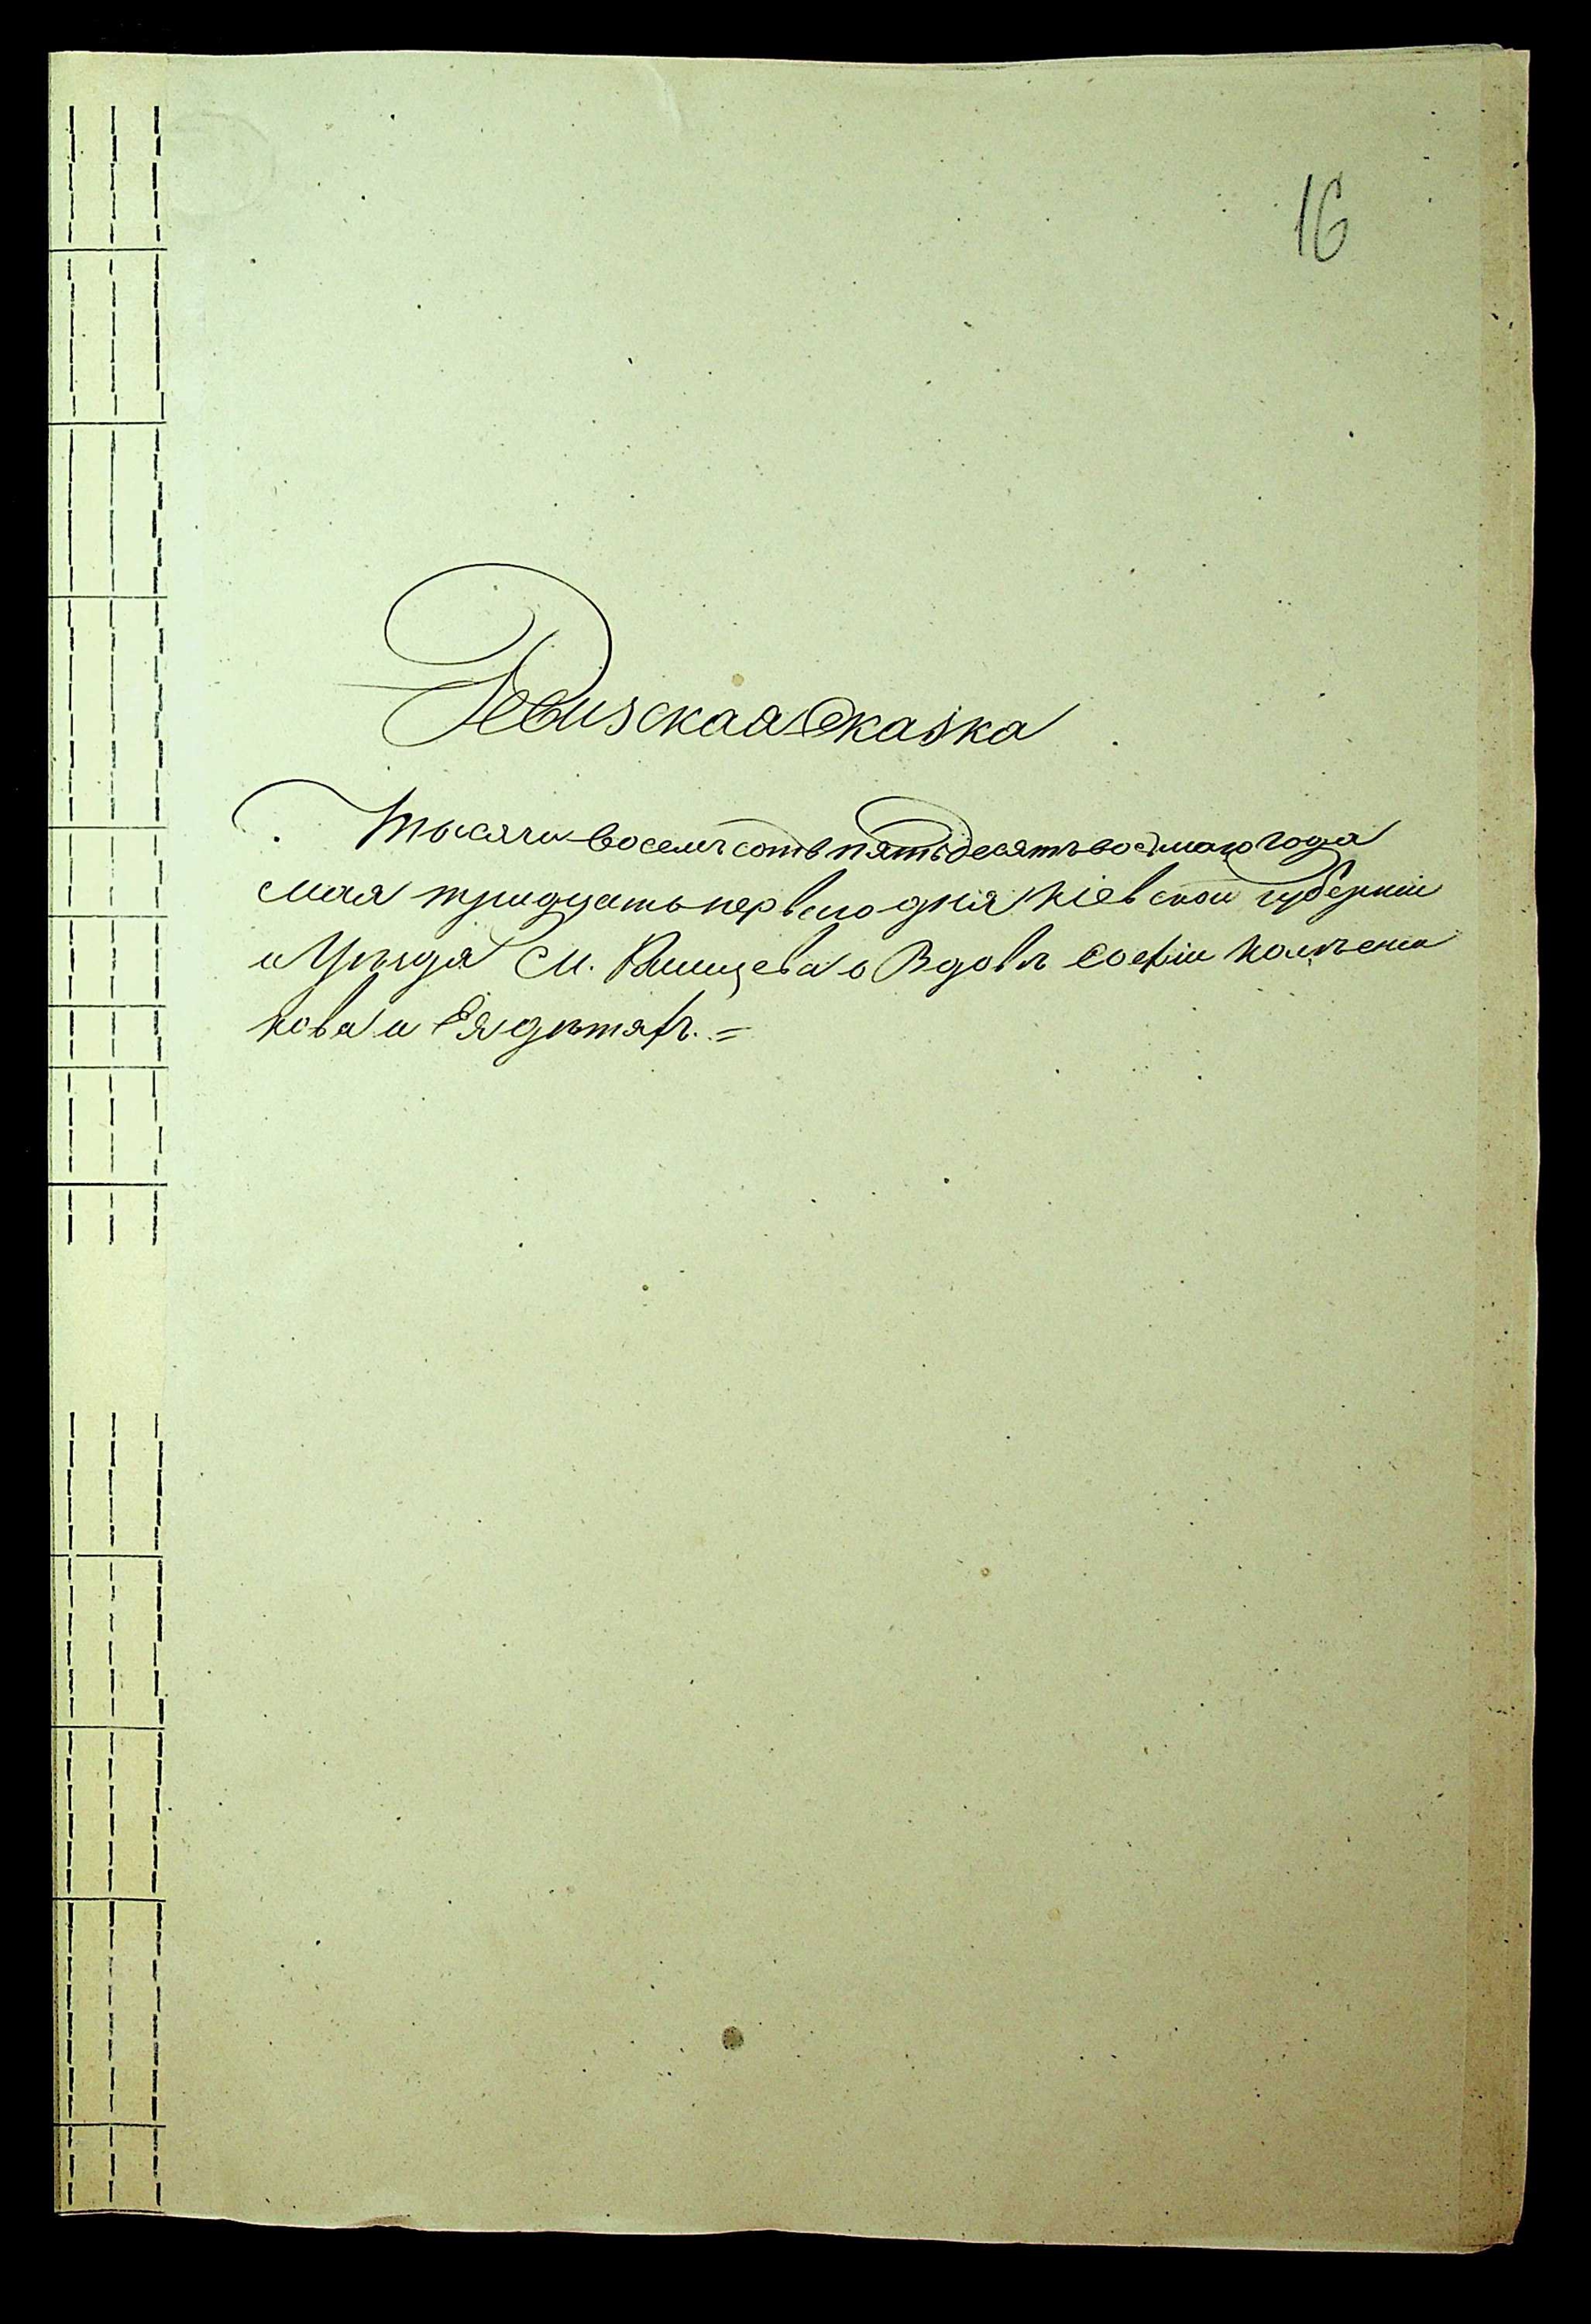 16
Ревизская Сказка
Тысяча восемь сотъ пятьдесятъ восьмаго года
мая тридцать первого дня Кіевской губерніи
и Уѣзда М. Ржищева о Вдовѣ Софіи
кова и Ея дѣтяхъ. =